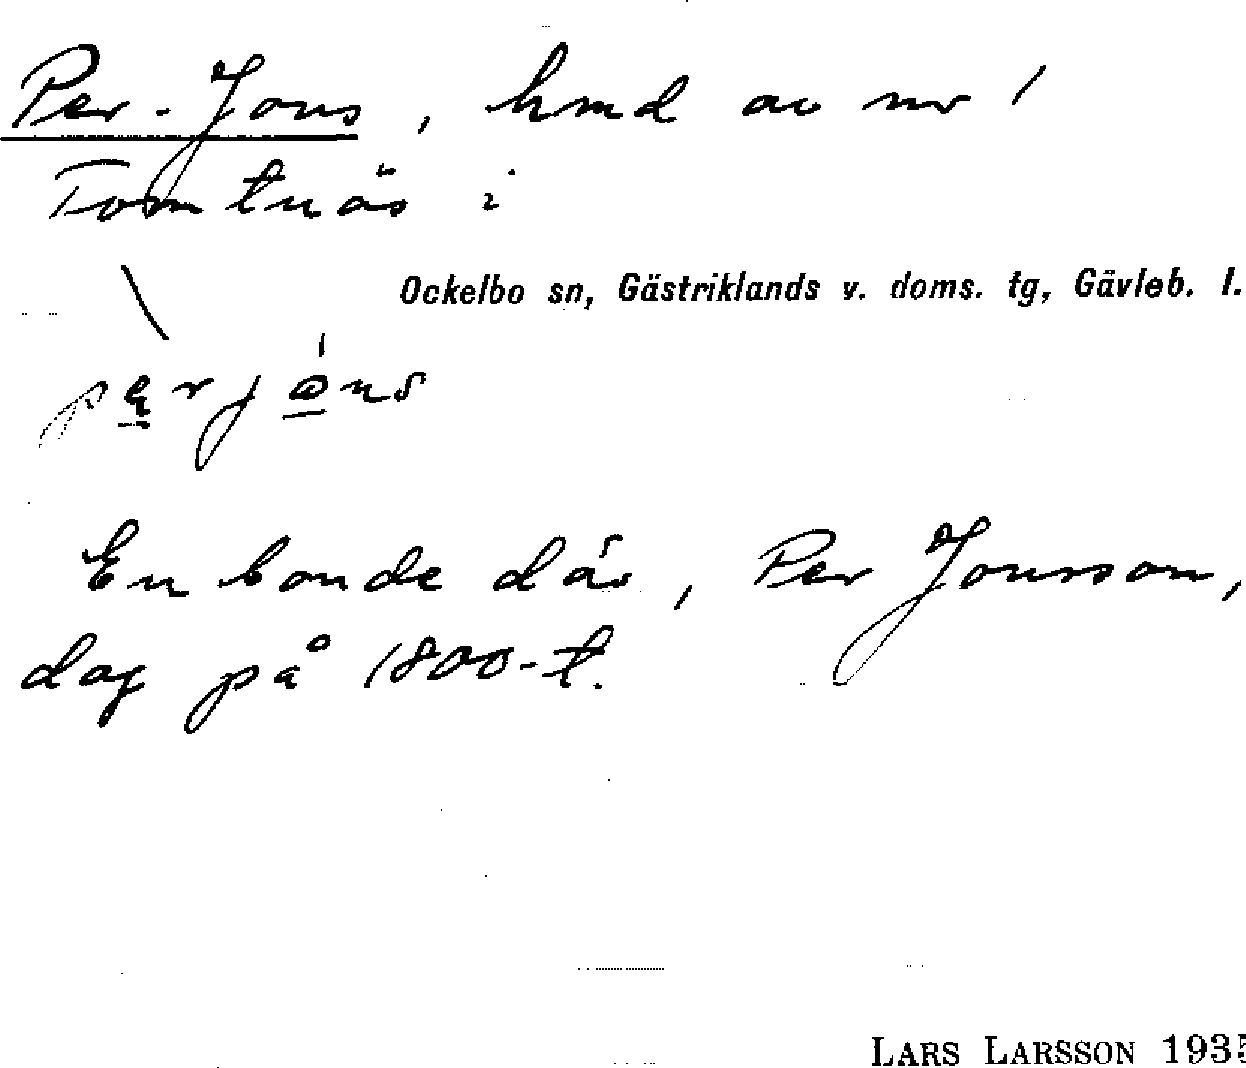 Per-Jons, hmd av nr 1
Tomtnäs i
Ockelbo sn, Gästriklands v. doms. tg, Gävleb. l.
En bonde där, Per Jonsson,
dog på 1800-t.
LARS LARSSON 1935